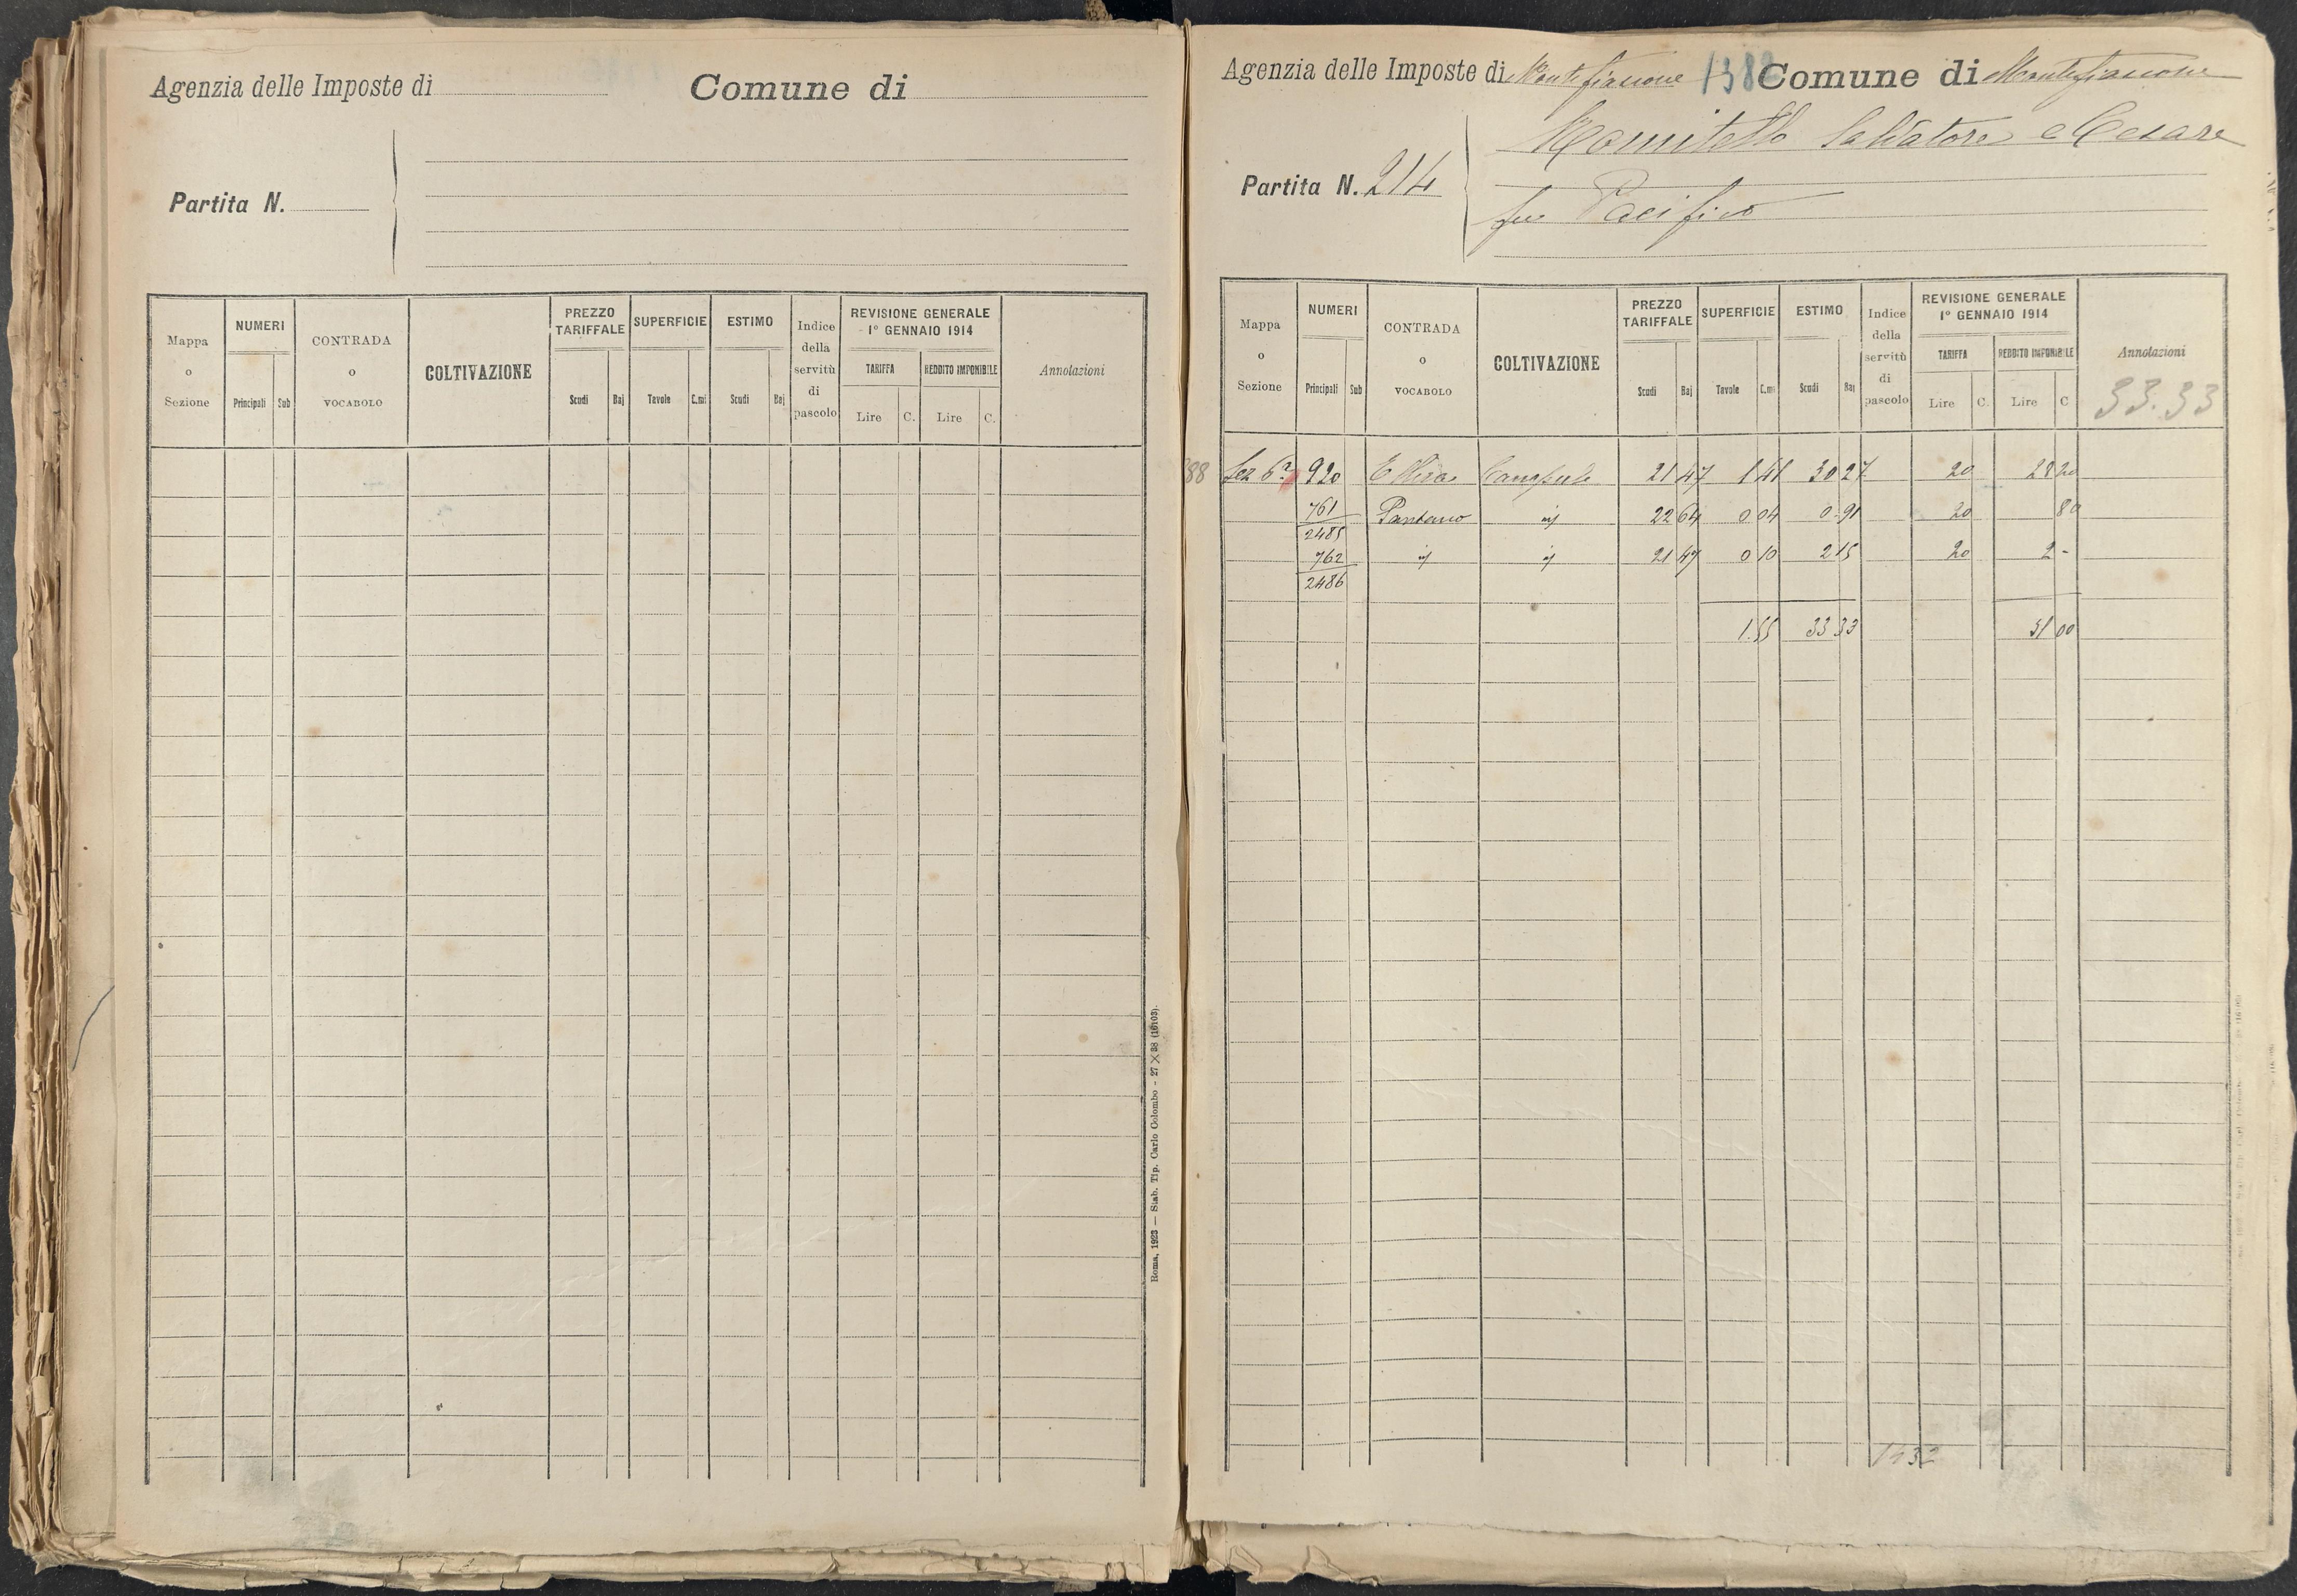 Agenzia delle Imposte di
Comune di
Partita N.
Mappa o Sezione
NUMERI
Principali Sub
CONTRADA o VOCABOLO
COLTIVAZIONE
PREZZO TARIFFALE
Scudi Baj
SUPERFICIE
Tavole C.mi
ESTIMO
Scudi Baj
Indice della servitù di pascolo
REVISIONE GENERALE
1° GENNAIO 1914
TARIFFA REDDITO IMPONIBILE
Lire C. Lire C.
Annotazioni
Roma, 1923 — Stab. Tip. Carlo Colombo - 27 X 38 (16103).
Agenzia delle Imposte di Montefiascone 1388 Comune di Montefiascone
Salvatore e Cesare
Partita N. 214
fu Pacifico
Mappa o Sezione
NUMERI
Principali Sub
CONTRADA o VOCABOLO
COLTIVAZIONE
PREZZO TARIFFALE
Scudi Baj
SUPERFICIE
Tavole C.mi
ESTIMO
Scudi Baj
Indice della servitù di pascolo
REVISIONE GENERALE
1° GENNAIO 1914
TARIFFA REDDITO IMPONIBILE
Lire C. Lire C
Annotazioni
33.33
88 Sez 6ª 920 21 47 1 41 30 27 20 28 20
761 Pantano 22 64 0 04 0.91 20 80
2485
762 21 47 0 10 2 15 20 2 -
2486
1.55 33 33 31 00
1432